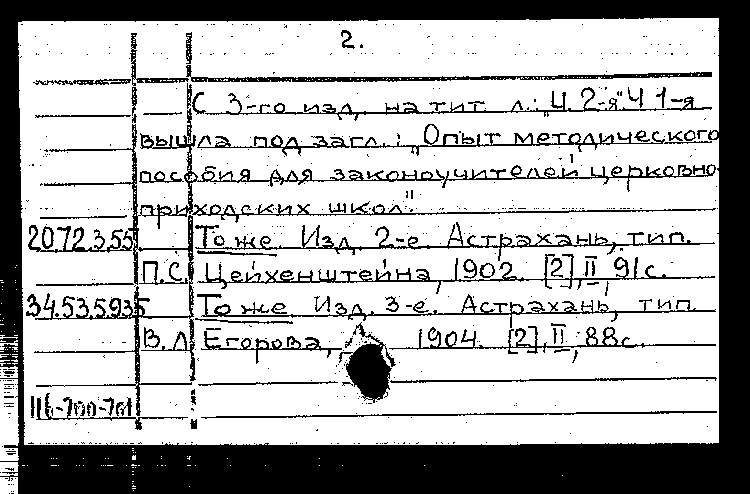 2.
С 3-го изд. на тит. л.: „Ч. 2-я". Ч 1-я
вышла под загл.: „Опыт методического
пособия для законоучителей церковно-
приходских школ".
20.72.3.55. То же. Изд. 2-е. Астрахань, тип.
П.С. Цейхенштейна, 1902. [2], II, 91с.
34.53.5.935 То же. Изд. 3-е. Астрахань, тип.
В.Л. Егорова, 1904. [2], II, 88с.
116-700-701